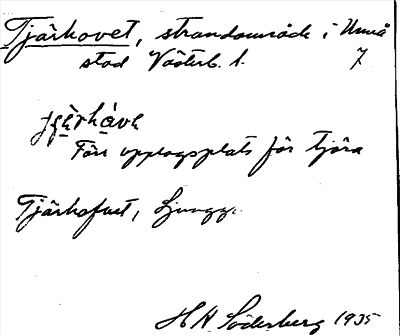 Tjärhovet, strandområde i Umeå
stad Västerb. l. 7
Förr upplagsplats för tjära
Tjärhofvet,
H H Söderberg 1935